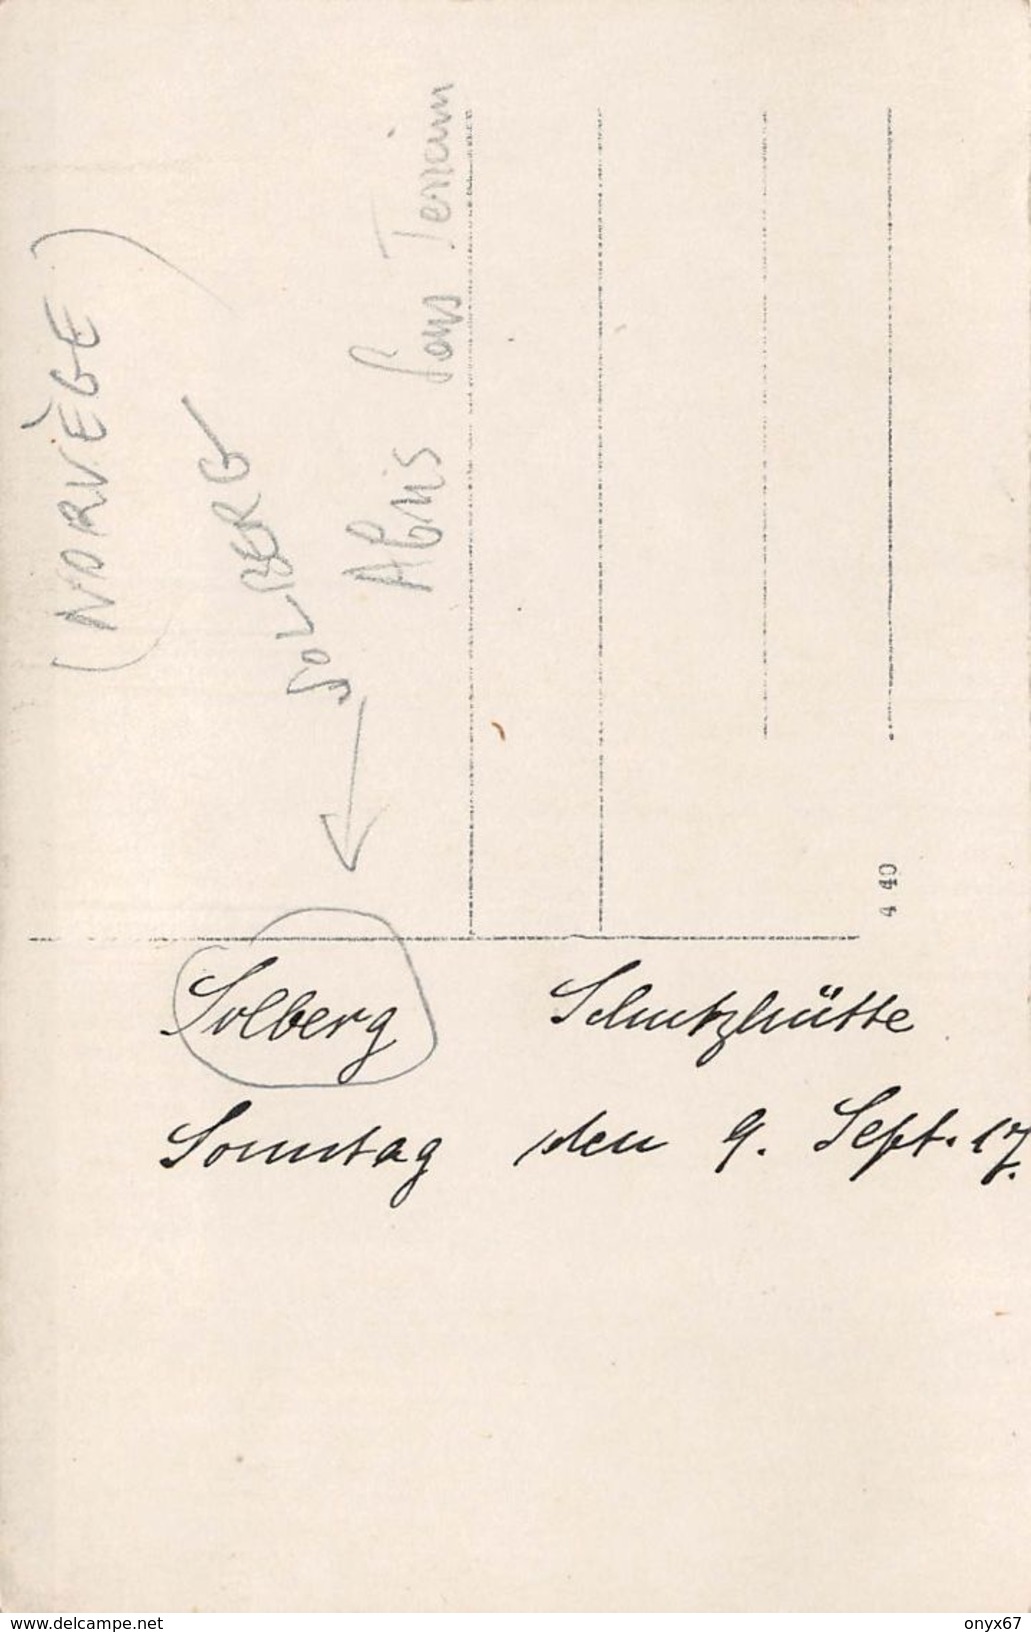 (NORVÈGE)
SOLBERG
Abris sous Terrain
4 40
Solberg Schutzhütte
Sonntag den 9. Sept. 17.
www.delcampe.net
onyx67